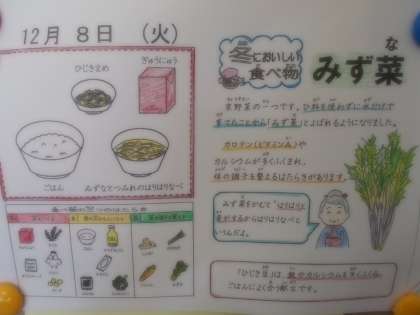 12月 8日 (火)
ひじきまめ
ぎゅうにゅう
ごはん
みずなとつみれのはりはりなべ
冬においしい
食べ物
みず菜
な
京野菜の一つです。ひ料を使わずに水だけで
育てたことから「みず菜」とよばれるようになりました。
カロテン(ビタミンA)や
カルシウムが多くふくまれ、
体の調子を整えるはたらきがあります。
みず菜をかむと"はりはり"と
音がするからはりはりなべと
いうんだよ。
「ひじき豆」は、鉄やカルシウムを多くふくみ、
ごはんによく合うおかずです。